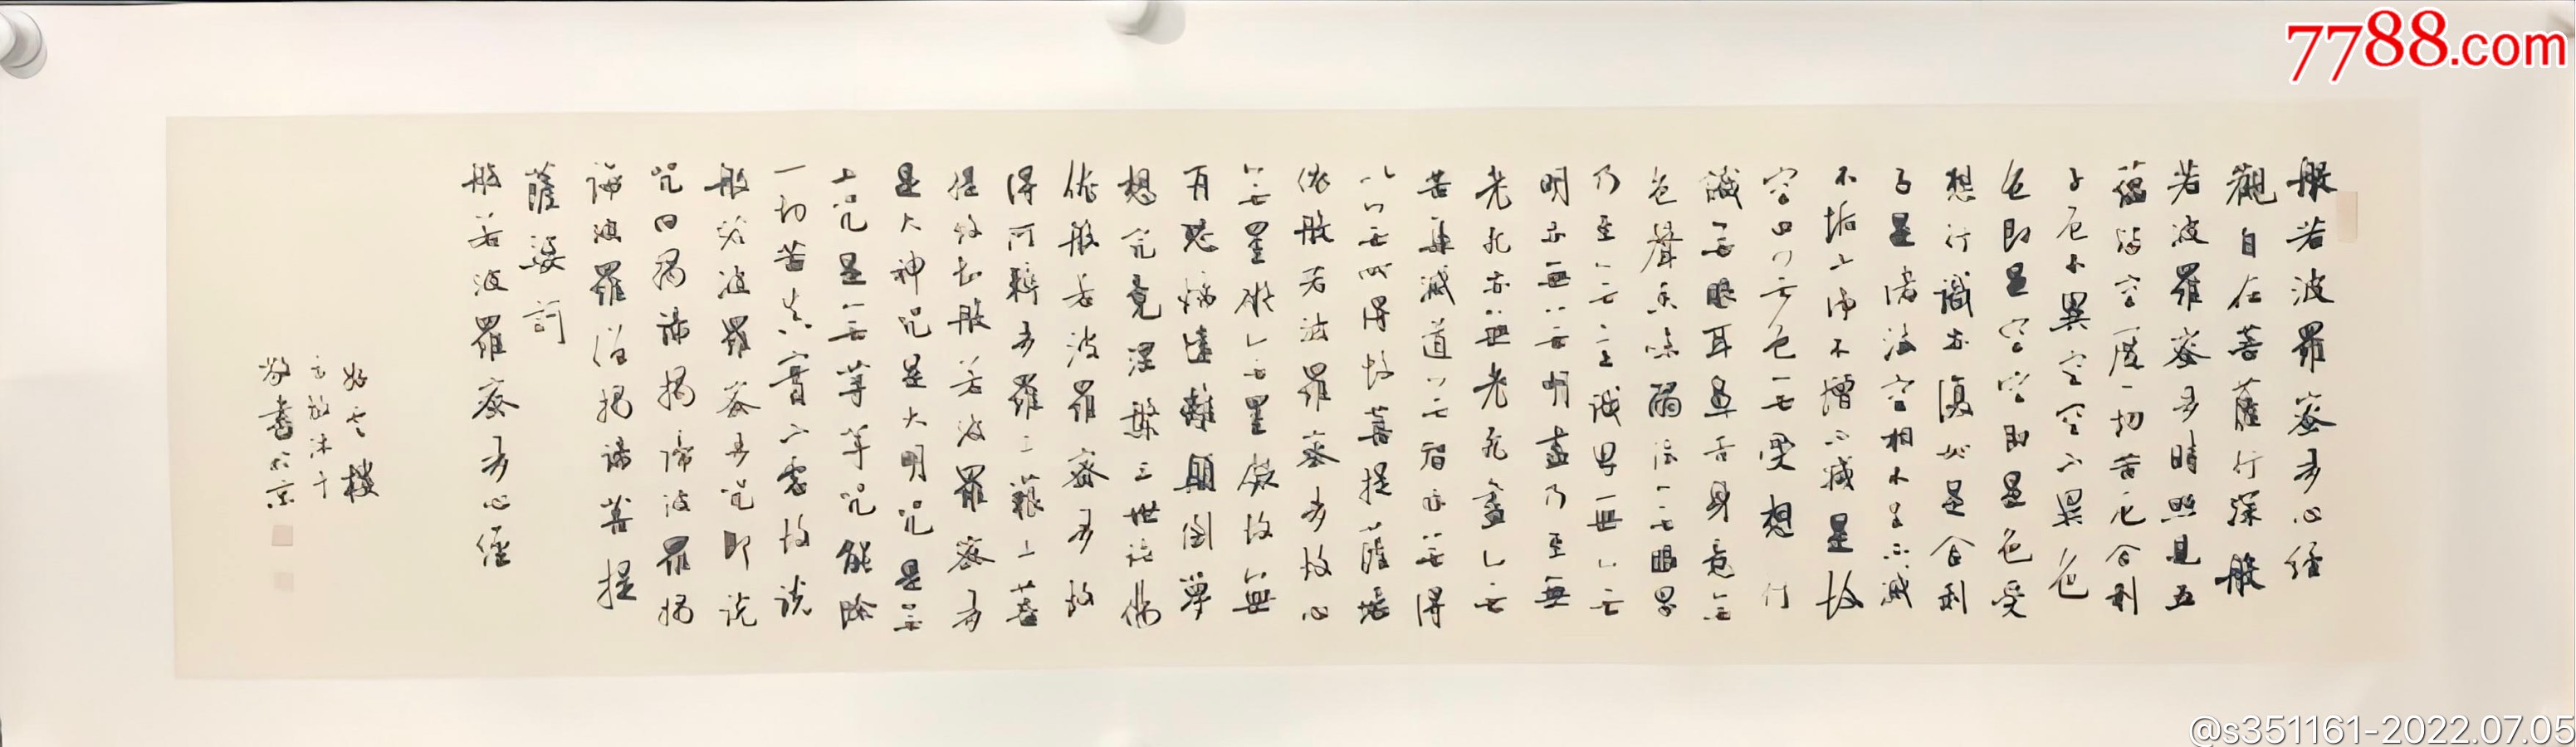 般若波羅蜜多心經
觀自在菩薩行深般
若波羅蜜多時照見五
蘊皆空度一切苦厄舍利
子色不異空空不異色
色即是空空即是色受
想行識亦復如是舍利
子是諸法空相不生不滅
不垢不淨不增不減是故
空中無色無受想行
識無眼耳鼻舌身意無
色聲香味觸法無眼界
乃至無意識界無無
明亦無無明盡乃至無
老死亦無老死盡無
苦集滅道無智亦無得
以無所得故菩提薩埵
依般若波羅蜜多故心
無罣礙無罣礙故無
有恐怖遠離顛倒夢
想究竟涅槃三世諸佛
依般若波羅蜜多故
得阿耨多羅三藐三菩
提故知般若波羅蜜多
是大神咒是大明咒是無
上咒是無等等咒能除
一切苦真實不虛故說
般若波羅蜜多咒即說
咒曰揭諦揭諦波羅揭
諦波羅僧揭諦菩提
薩婆訶
般若波羅蜜多心經
好雲樓
主放沐手
敬書於京
7788.com
@s351161-2022.07.05